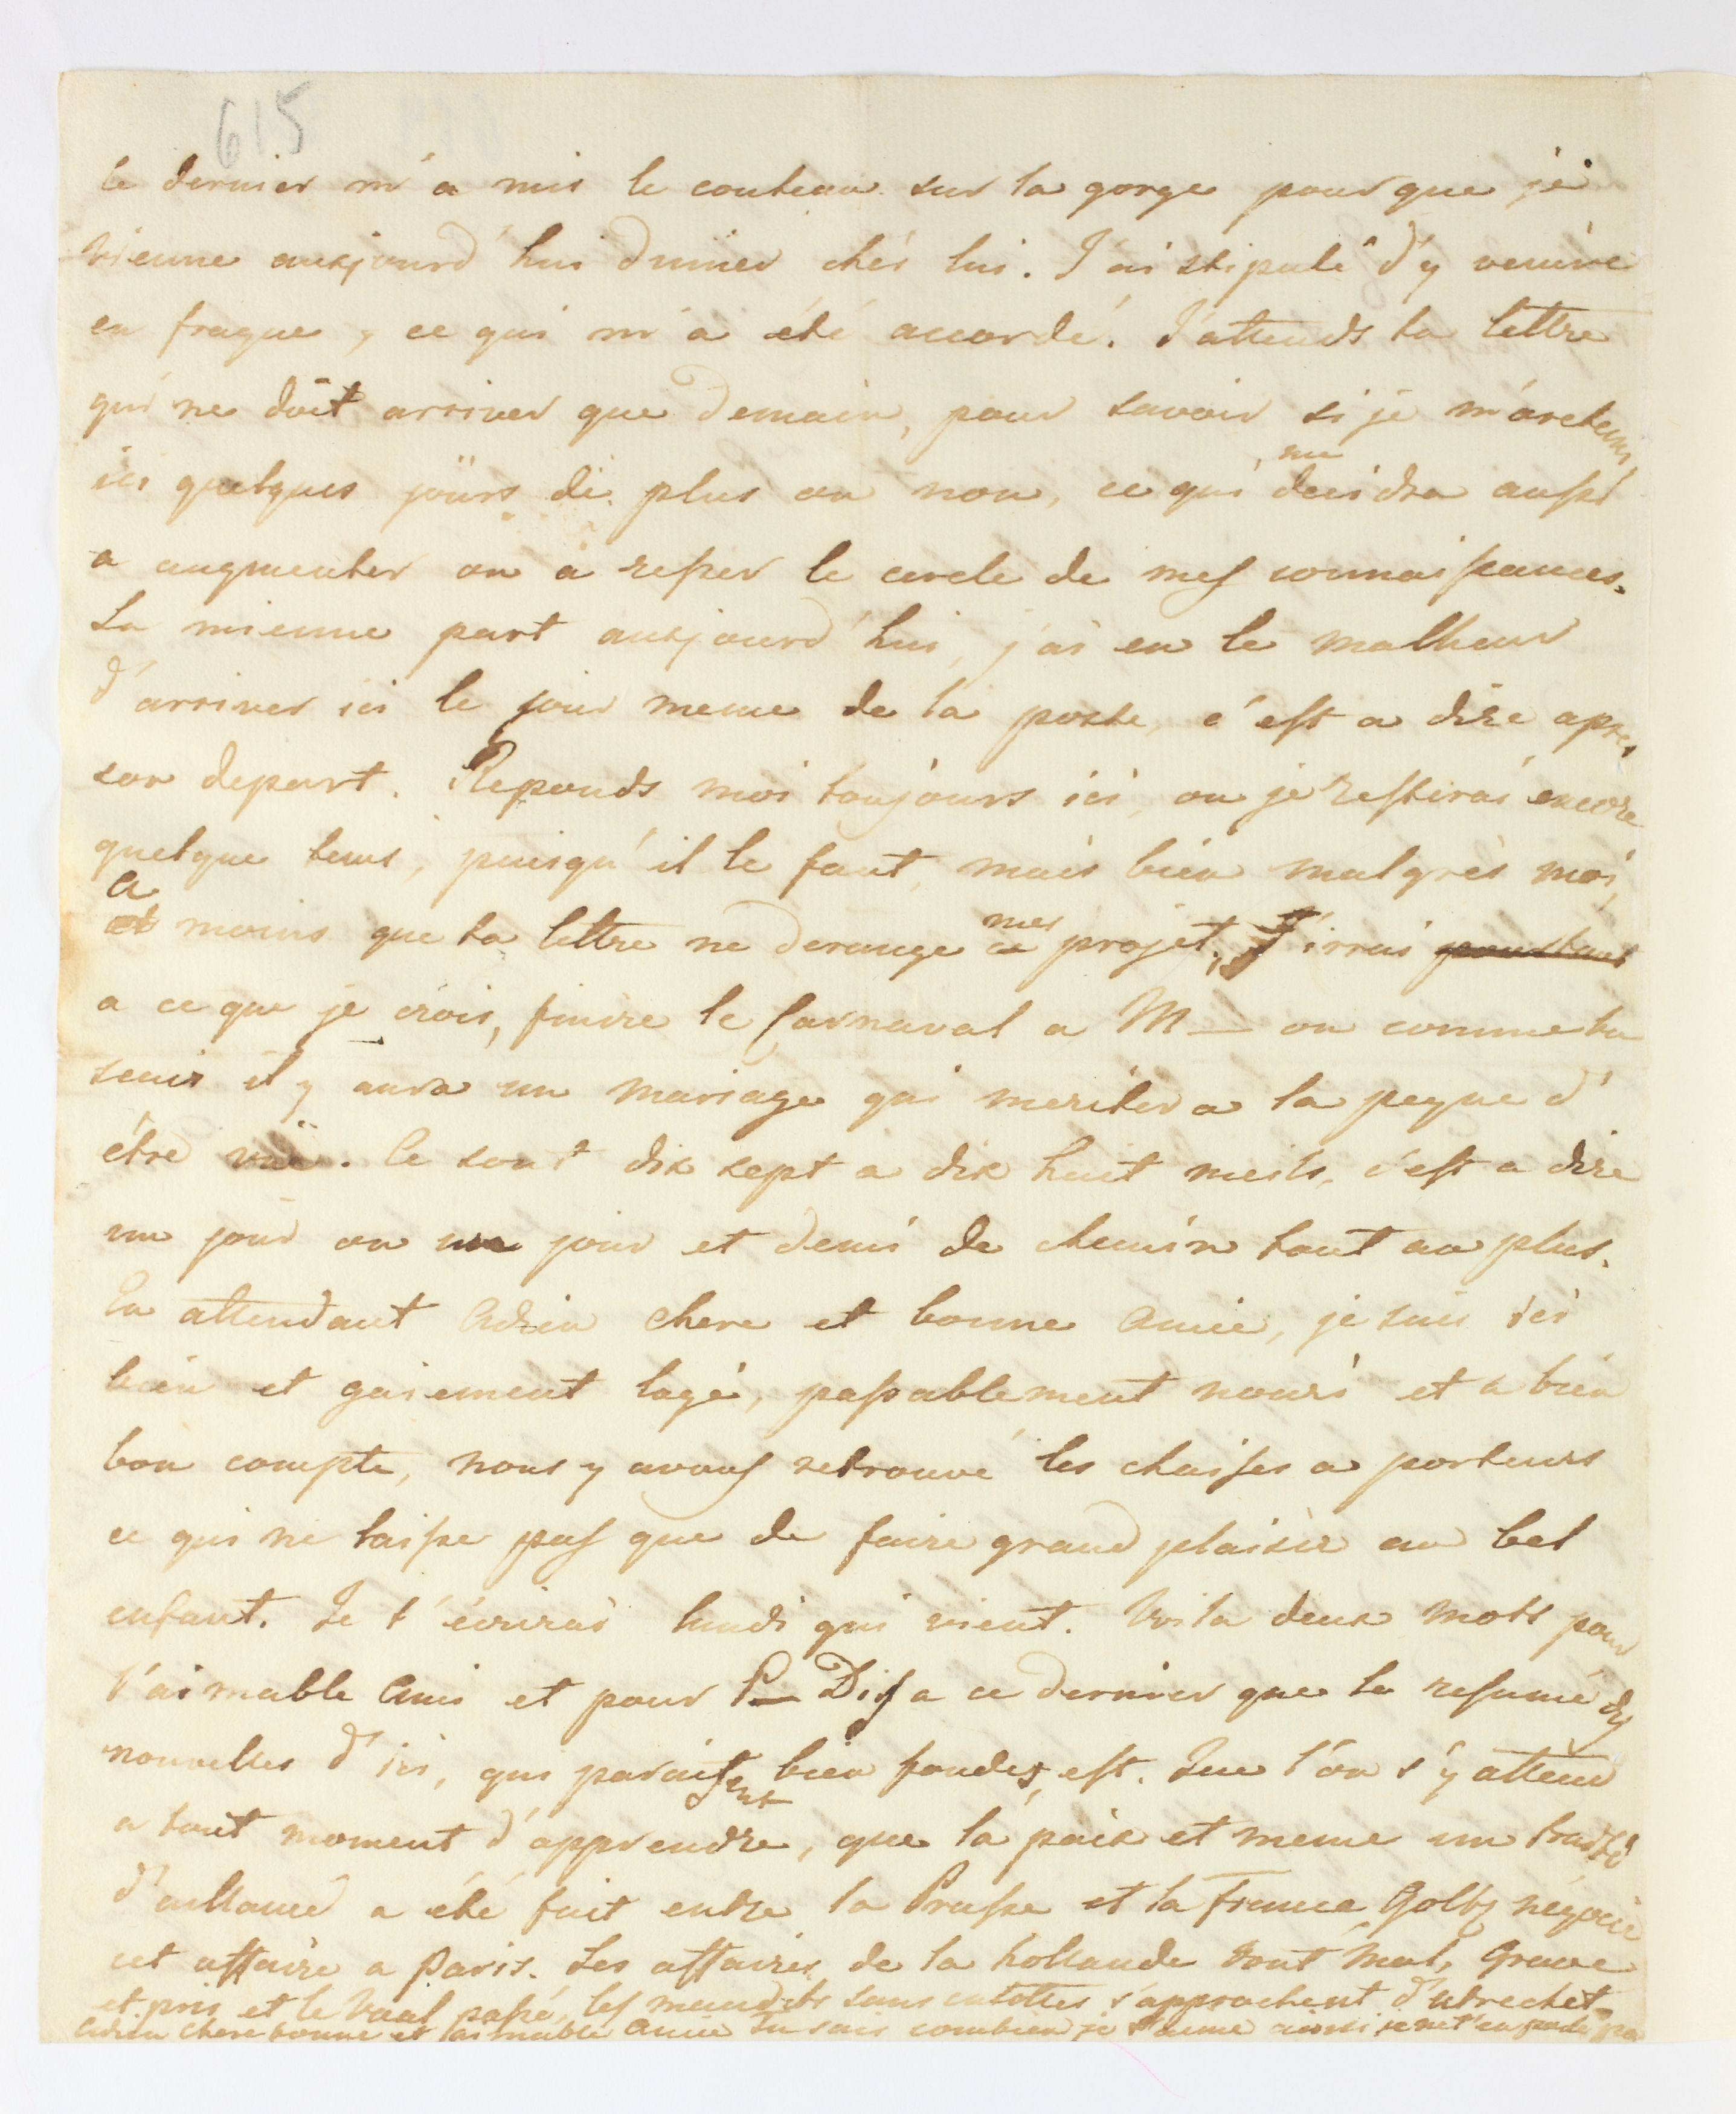 615
ce dernier m'a mis le couteau sur la gorge pour que je
vienne aujourd'hui diniér chés lui. J'ai stipulé d'y venire
en fraque, ce qui m'a été accordé. J'attends ta lettre
qui ne doit arriver que demain, pour savoir si je m'aretterai
ici quelques jours de plus ou non, ce qui me decidra aussi
a augmenter ou a resser le cercle de mes connaissances.
La mienne part aujourd'hui, j'ai eu le malheur
d'arriver ici le jour meme de la poste, c'est a dire apres
son depart. Reponds moi toujours ici, ou je resterai encore
quelque tems, puisqu'il le faut, mais bien malgrès moi,
a moins que ta lettre ne derange mes projet, J'irrai pourtant
a ce que je crois, finire le Carnaval a M— ou comme tu
scais il y aura un mariage qui meritera la pegne d'
être vüe. Ce sont dix sept a dix huit meils, c'est a dire
un jour ou un jour et demi de chemin tout au plus.
En attendant Adieu chere et bonne Amie, je suis ici
bien et gaiement logé, passablement nouri et a bien
bon compte, nous y avons retrouvé les chaises a porteurs
ce qui ne laisse pas que de faire grand plaisir au bel
enfant. Je t'écrirai lundi qui vient. Voila deux mots pour
l'aimable Ami et pour P— Dis a ce dernier que le resumé des
nouvelles d'ici, qui paraissent bien fondes, est. Que l'on s'y attend
a tout moment d'apprendre, que la paix et meme un traité
d'alliance a été fait entre la Prusse et la France Goltz negocie
cet affaire a Paris. Les affaires de la hollande vont mal, Grave
et pris et le Vaal passé, les maudits sans culottes s'approchent d'utrecht.
Adieu chere bonne et aimable Amie tu sais combien je t'aime aussi je ne t'en parle pas